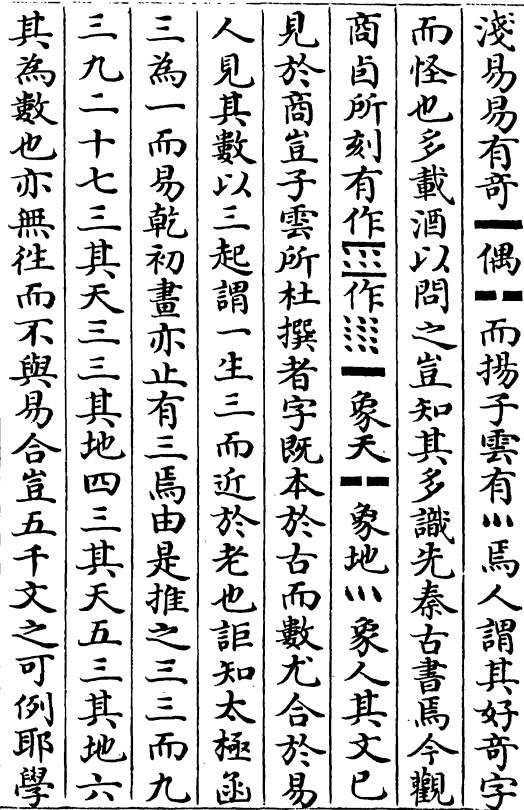 淺易易有奇⚊偶⚋而揚子雲有𝌀焉人謂其好奇字
而怪也多載酒以問之豈知其多識先秦古書焉今觀
商卣所刻有作作⚊象天⚋象地象人其文已
見於商豈子雲所杜撰者字既本於古而數尤合於易
人見其數以三起謂一生三而近於老也詎知太極函
三為一而易乾初畫亦止有三焉由是推之三三而九
三九二十七三其天三三其地四三其天五三其地六
其為數也亦無徃而不與易合豈五千文之可例耶學